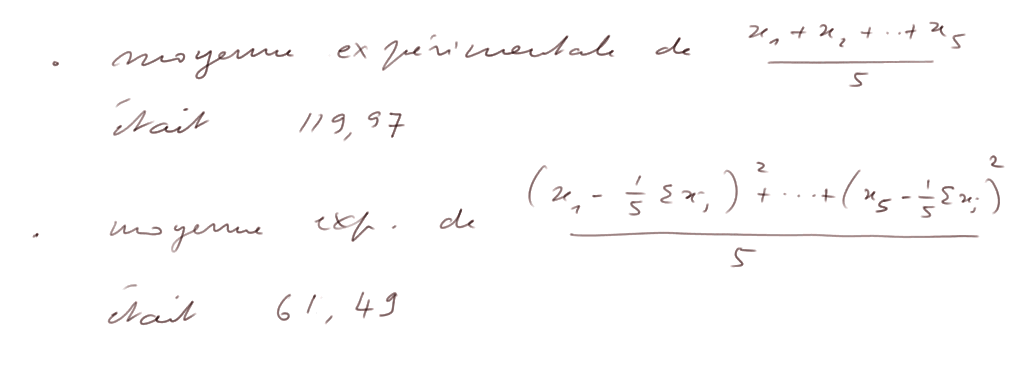 . moyenne expérimentale de (x₁ + x₂ + ... + x₅) / 5
était 119,97
. moyenne exp. de ((x₁ - 1/5 Σxᵢ)² + ... + (x₅ - 1/5 Σxᵢ)²) / 5
était 61,49